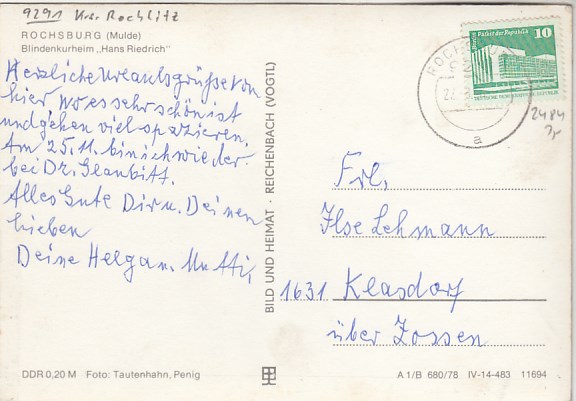 9291 Krs. Rochlitz
ROCHSBURG (Mulde)
Blindenkurheim „Hans Riedrich"
Herzliche Urlaubsgrüße von
hier, wo es sehr schön ist
und gehen viel spazieren.
Am 25.11. bin ich wieder
bei Dr.
Alles Gute Dir u. Deinen
Lieben
Deine Helga u. Mutti,
BILD UND HEIMAT · REICHENBACH (VOGTL)
Palast der Republik
10
ROCHSBURG
a
2484
Frl.
Ilse Lehmann
1631 Klasdorf
über Zossen
DDR 0,20 M Foto: Tautenhahn, Penig
A 1/B 680/78 IV-14-483 11694